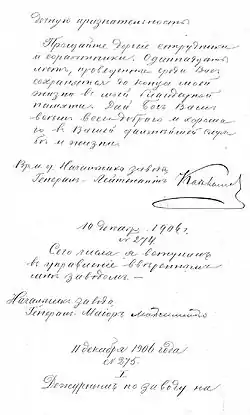 Должную признательность
Прощайте дорогие сотрудники
и соратники. Одиннадцать
лет, проведенные среди Вас
сохранятся до конца моей
жизни в моей благодарной
памяти. Дай Бог Вам
всего доброго и хороше
го в Вашей дальнейшей служ
бе и жизни.
Вр. и. д. Начальника завода
Генерал-Лейтенант
10 декабр. 1906 г.
№ 274
Сего числа я вступил
в управление вверенным
мне заводом. —
Начальник завода
Генерал-Маиор
11 декабря 1906 года
№ 275.
I
Дежурным по заводу на